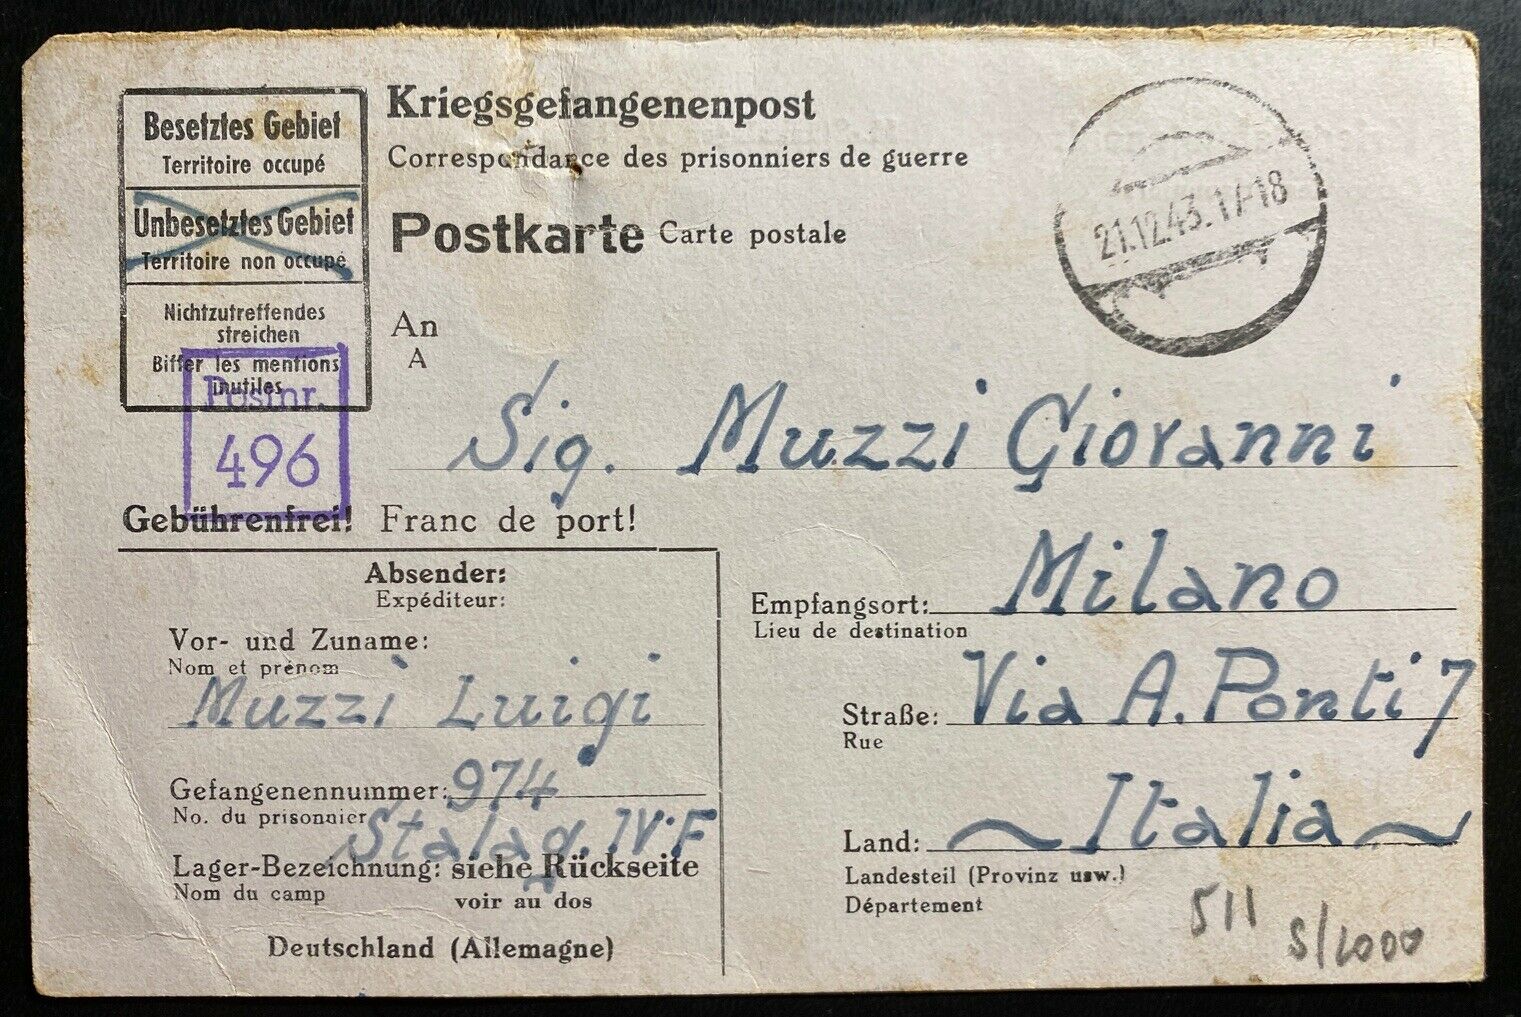 Besetztes Gebiet
Territoire occupé
Unbesetztes Gebiet
Territoire non occupé
Nichtzutreffendes
streichen
Biffer les mentions
inutiles
Postnr.
496
Kriegsgefangenenpost
Correspondance des prisonniers de guerre
Postkarte Carte postale
21.12.43.17-18
An
A
Sig. Muzzi Giovanni
Gebührenfrei! Franc de port!
Absender:
Expéditeur:
Vor- und Zuname:
Nom et prénom
Muzzi Luigi
Gefangenennummer: 974
No. du prisonnier
Stalag. IV-F
Lager-Bezeichnung: siehe Rückseite
Nom du camp voir au dos
Deutschland (Allemagne)
Empfangsort: Milano
Lieu de destination
Straße: Via A. Ponti 7
Rue
Land: ~ Italia ~
Landesteil (Provinz usw.)
Département
511
S/1000